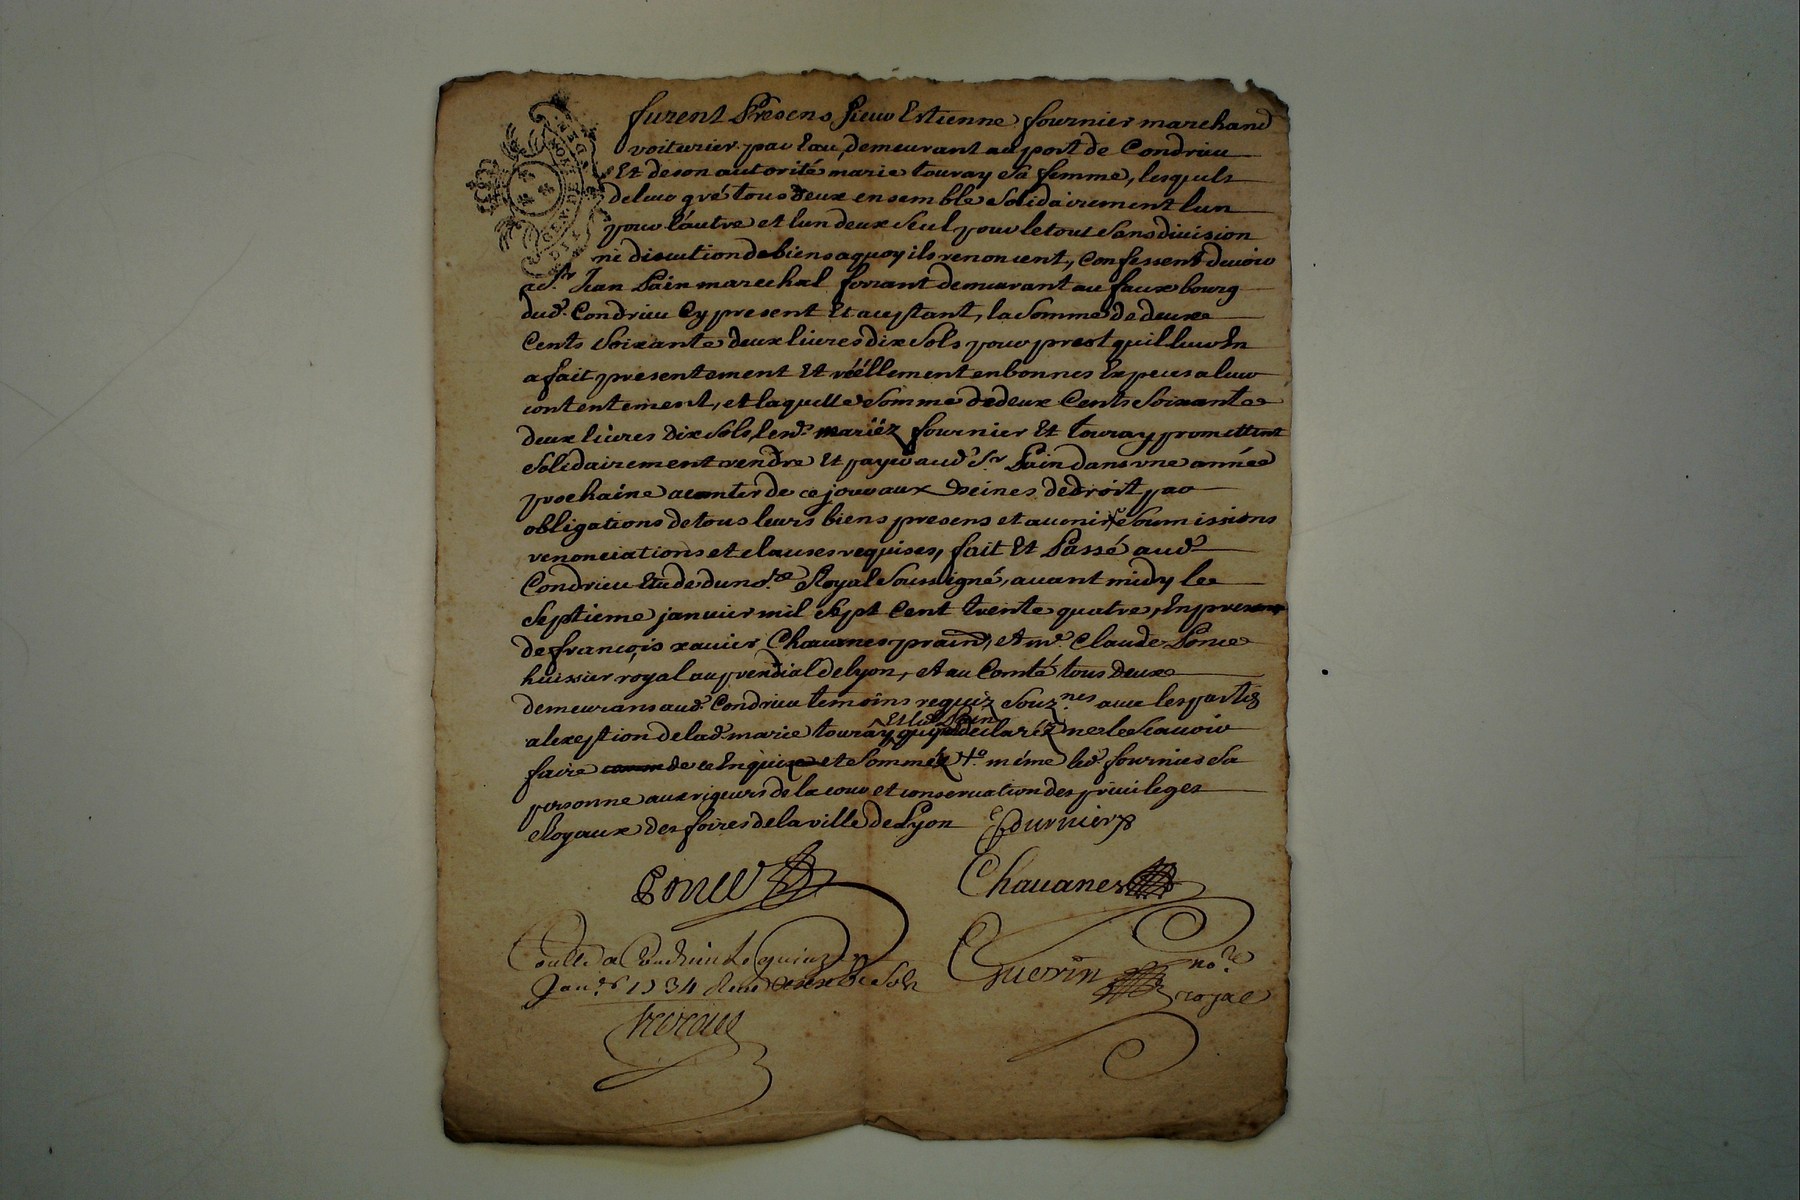 furent Presens Sieur Estienne fournier marchand
voiturier par Eau, demeurant au port de Condrieu
Et de son autorité marie touray sa femme, lesquels
de leur gré tous deux ensemble solidairement lun
pour l'autre et lun deux seul pour le tout sans division
ni discution de biens a quoy ils renoncent, Confessent devoir
a Sr. Jean Pain marechal ferrant demeurant au faux bourg
dud. Condrieu Cy present Et aceptant, la somme de deux
Cents Soixante deux livres dix sols pour prest quil leur En
a fait presentement Et réellement en bonnes Especes a leur
contentement, et laquelle somme de deux Cents Soixante
deux livres dix sols, lesd. mariéz fournier Et touray promettent
solidairement rendre Et payer aud. Sr. Pain dans une année
prochaine a conter de ce jour aux peines de droit par
obligations de tous leurs biens presens et avenir Soumissions
renonciations et clauses requises, fait Et Passé aud.
Condrieu Etude du nore. Royal Soussigné, avant midy le
Septieme janvier mil Sept Cent trente quatre, En presence
de françois xavier Chavanes prain, et Me. Claude Ponce
huissier royal au presidial de lyon, et au Comté tous deux
demeurans aud. Condrieu temoins requiz Souz.nes avec les parties
a lexeption de lad. marie touray
Et led. Pain
qui ont declaréz ne le Scavoir
faire de ce Enquis et Sommés
même led. fournier Sa
personne aux rigeurs de la cour et conservation des privileges
Royaux des foires de la ville de Lyon
fournier
Ponce
Chavanes
Guerin no.re
royal
Con.lle a Condrieu Le quinze
Janv.r 1734